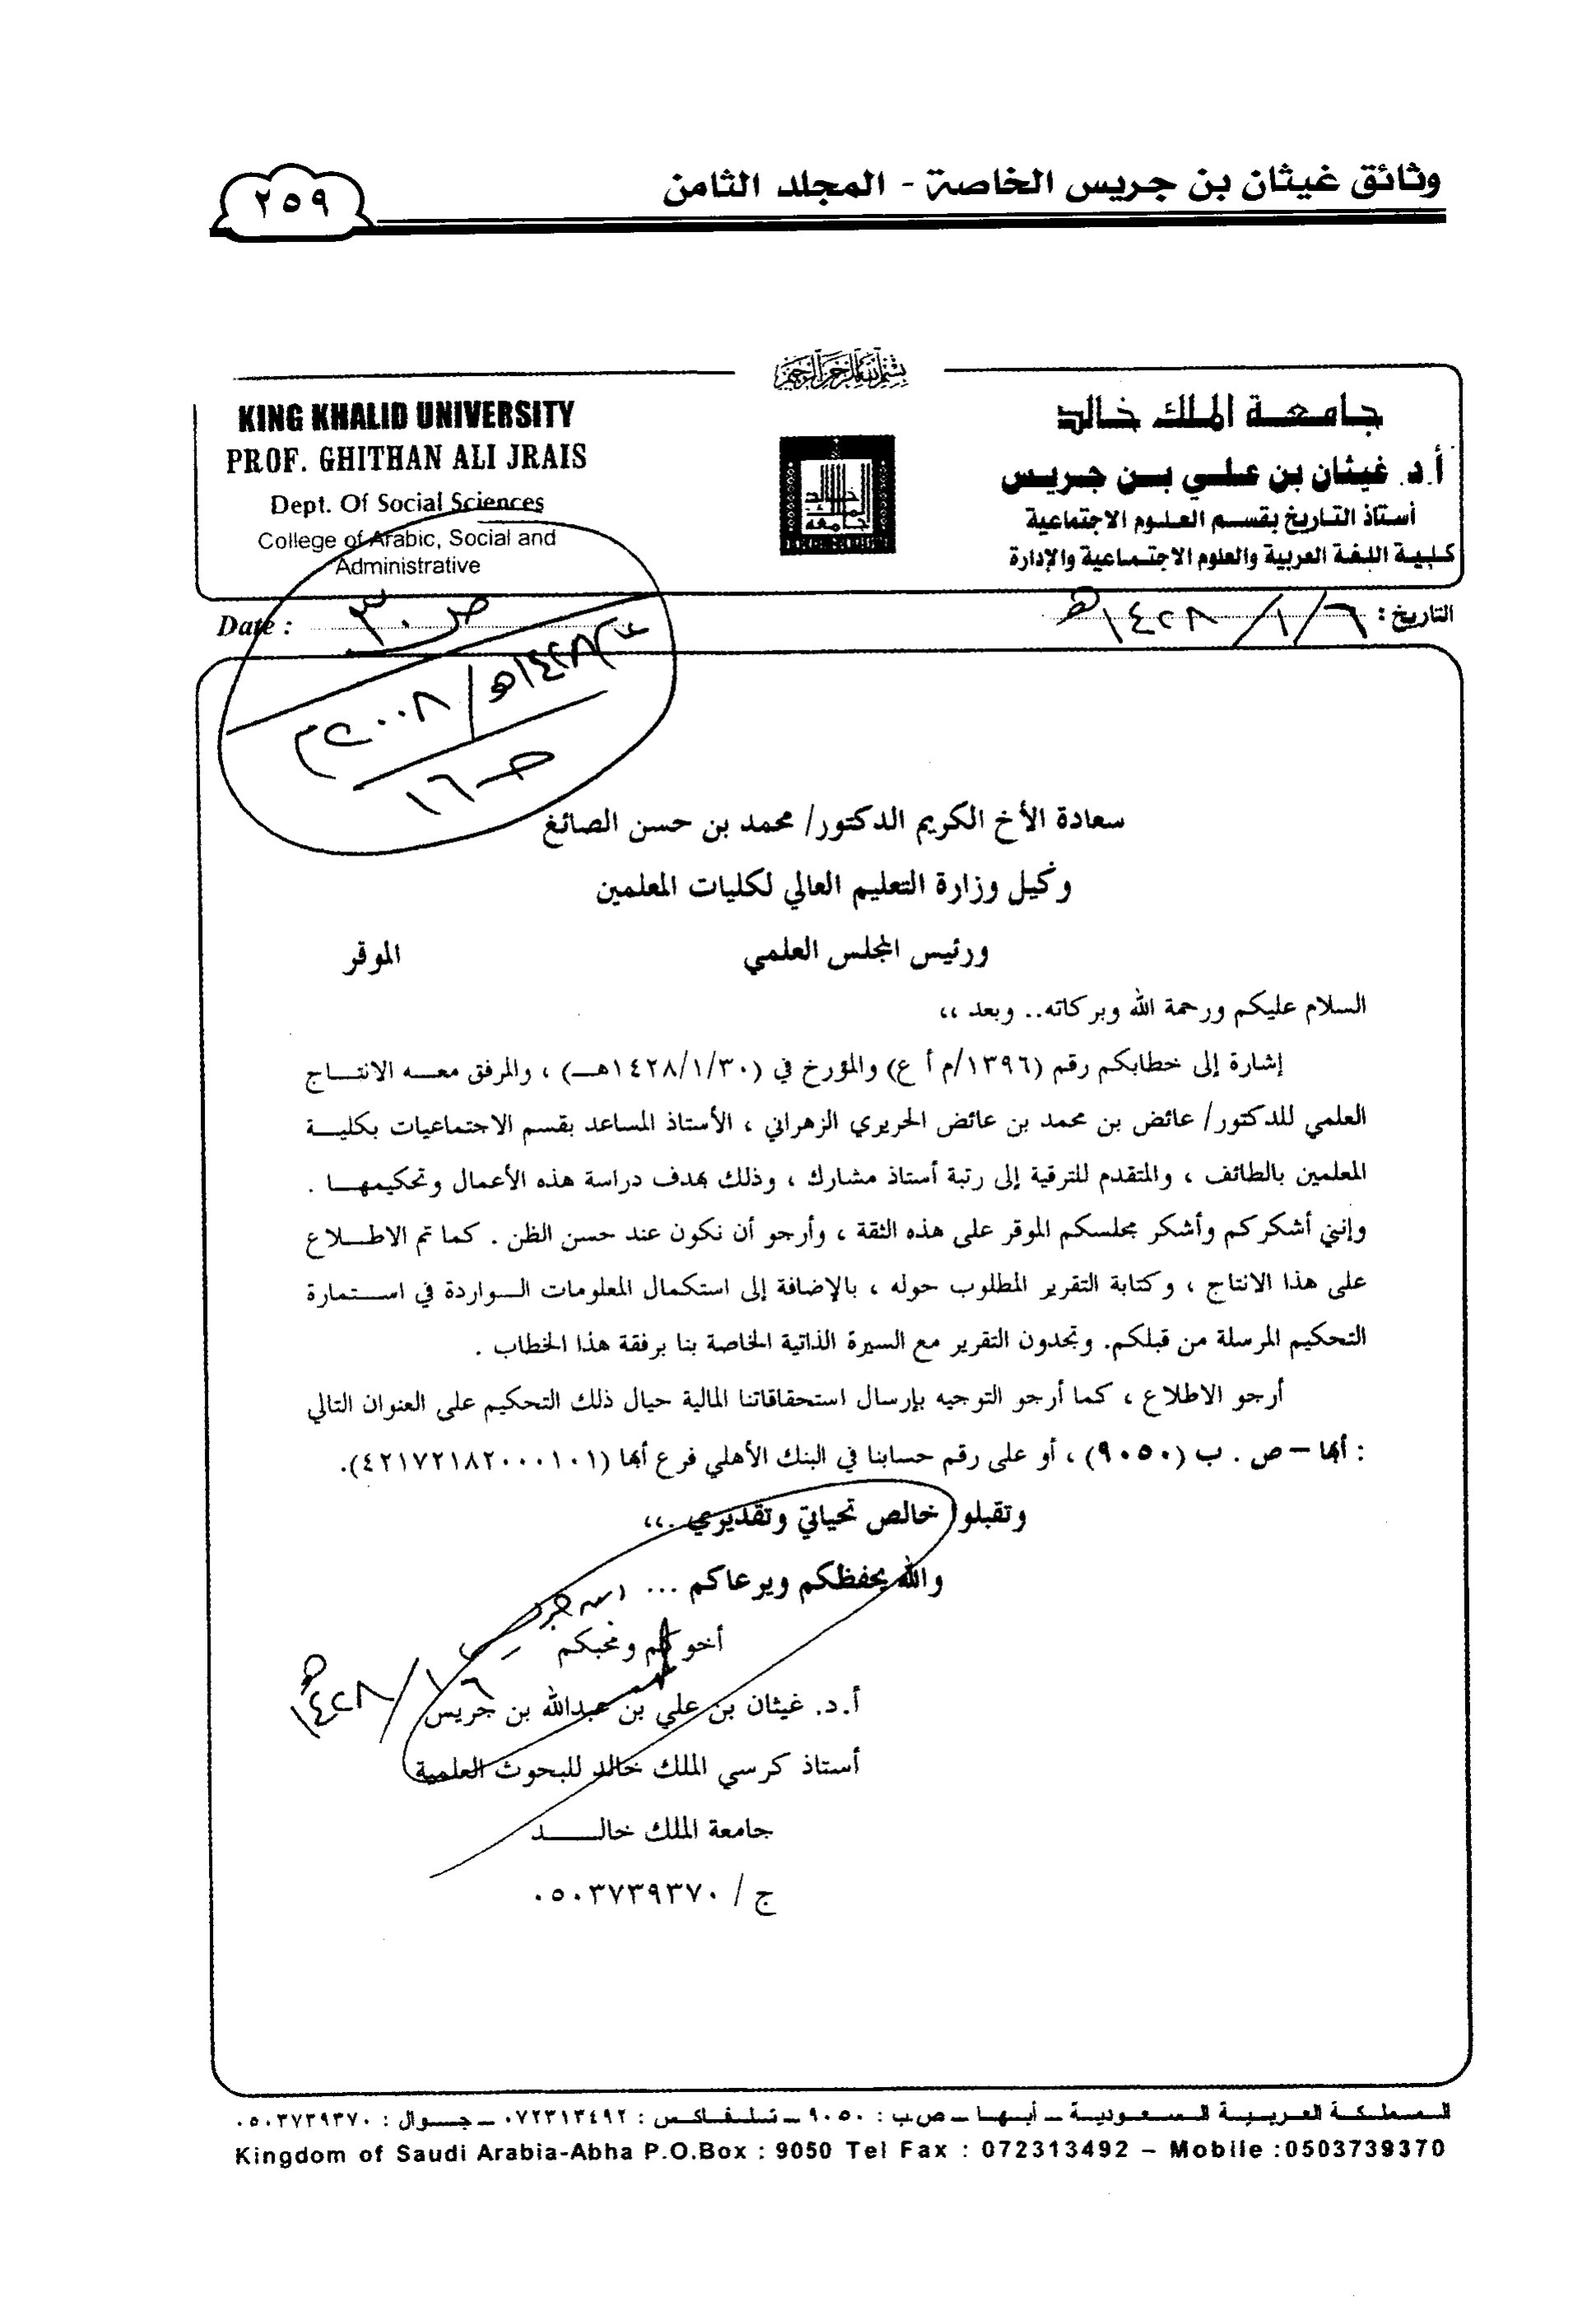 وثائق غيثان بن جريس الخاصة - المجلد الثامن
٢٥٩
بسم الله الرحمن الرحيم
جامعة الملك خالد
أ.د. غيثان بن علي بن جريس
أستاذ التاريخ بقسم العلوم الاجتماعية
كلية اللغة العربية والعلوم الاجتماعية والإدارة
KING KHALID UNIVERSITY
PROF. GHITHAN ALI JRAIS
Dept. Of Social Sciences
College of Arabic, Social and
Administrative
التاريخ : ٦/١/١٤٢٨هـ
Date :
ص ٣٠
١٤٢٨هـ/٢٠٠٨م
صـ ١٦
سعادة الأخ الكريم الدكتور/ محمد بن حسن الصائغ
وكيل وزارة التعليم العالي لكليات المعلمين
ورئيس المجلس العلمي الموقر
السلام عليكم ورحمة الله وبركاته.. وبعد ،،
إشارة إلى خطابكم رقم (١٣٩٦/م أ ع) والمؤرخ في (١٤٢٨/١/٣٠هـــ) ، والمرفق معـــه الانتـــاج
العلمي للدكتور/ عائض بن محمد بن عائض الحريري الزهراني ، الأستاذ المساعد بقسم الاجتماعيات بكليـــة
المعلمين بالطائف ، والمتقدم للترقية إلى رتبة أستاذ مشارك ، وذلك بهدف دراسة هذه الأعمال وتحكيمهـــا .
وإنني أشكركم وأشكر مجلسكم الموقر على هذه الثقة ، وأرجو أن نكون عند حسن الظن . كما تم الاطـــلاع
على هذا الانتاج ، وكتابة التقرير المطلوب حوله ، بالإضافة إلى استكمال المعلومات الـــواردة في استـــمارة
التحكيم المرسلة من قبلكم. وتجدون التقرير مع السيرة الذاتية الخاصة بنا برفقة هذا الخطاب .
أرجو الاطلاع ، كما أرجو التوجيه بإرسال استحقاقاتنا المالية حيال ذلك التحكيم على العنوان التالي
: أبها – ص . ب (٩٠٥٠) ، أو على رقم حسابنا في البنك الأهلي فرع أبها (٤٢١٧٢١٨٢٠٠٠١٠١).
وتقبلوا خالص تحياتي وتقديري .،،
والله يحفظكم ويرعاكم ...
أخوكم ومحبكم
٦/١/١٤٢٨هـ
أ.د. غيثان بن علي بن عبدالله بن جريس
أستاذ كرسي الملك خالد للبحوث العلمية
جامعة الملك خالـــــد
ج / ٠٥٠٣٧٣٩٣٧٠
المملكة العربية السعودية – أبها – ص.ب : ٩٠٥٠ – تلفاكس : ٠٧٢٣١٣٤٩٢ – جوال : ٠٥٠٣٧٣٩٣٧٠
Kingdom of Saudi Arabia-Abha P.O.Box : 9050 Tel Fax : 072313492 – Mobile :0503739370